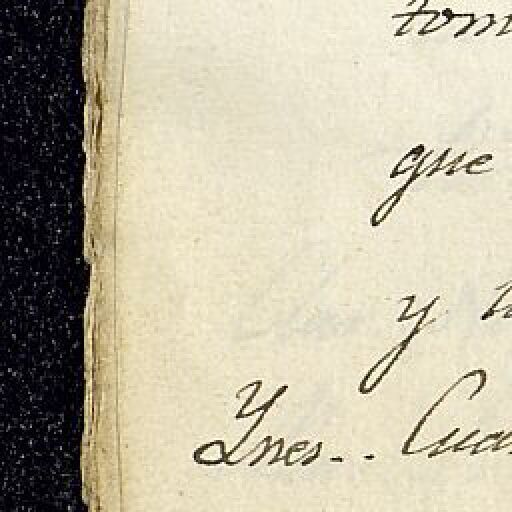 tom
que
y
Ynes.. Cua